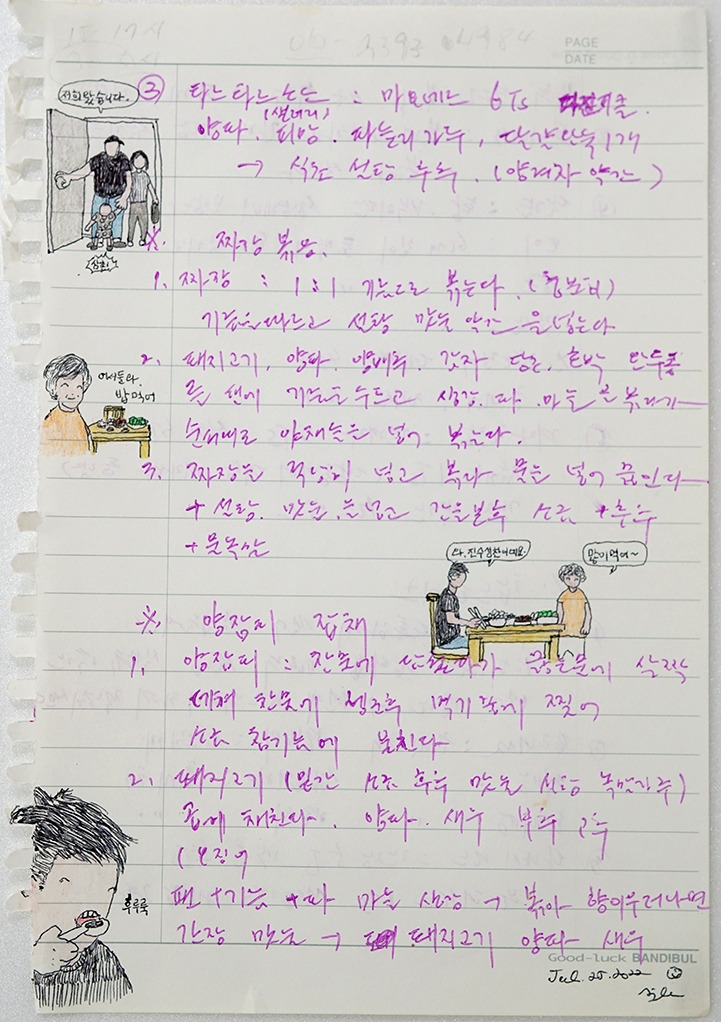 PAGE
DATE
저희 왔습니다.
③ 타르타르소스 : 마요네즈 6Ts 피클
(샐러리)
양파, 피망, 파슬리가루, 달걀반숙 1개
→ 식초 설탕 후추. (양겨자 약간)
※ 짜장 볶음.
1. 짜장 : 1:1 기름으로 볶는다. (중불)
기름을 따르고 설탕 맛술 약간을 넣는다
어서들와,
밥먹어
2. 돼지고기, 양파, 양배추, 감자 당근, 호박
팬에 기름을 두르고 생강, 파, 마늘을 볶다가
순서대로 야채를 넣어 볶는다.
3. 짜장을 적당히 넣고 볶다 물을 넣어 끓인다
+ 설탕, 맛술을 넣고 간을본후 소금 + 후추
+ 물녹말
와, 진수성찬이네요.
많이먹어~
※ 양장피 잡채
1. 양장피 : 찬물에 끓는물에 살짝
데쳐 찬물에 헹군후 먹기좋게 찢어
소금 참기름에 무친다
2. 돼지고기 (밑간 소금 후추 맛술 녹말가루)
곱게 채친다. 양파. 새우 부추 고추
(오징어
후루룩
팬 + 기름 + 파 마늘 생강 → 볶아 향이우러나면
간장 맛술 → 돼지고기 양파 새우
Good-luck BANDIBUL
Jul. 25. 2022